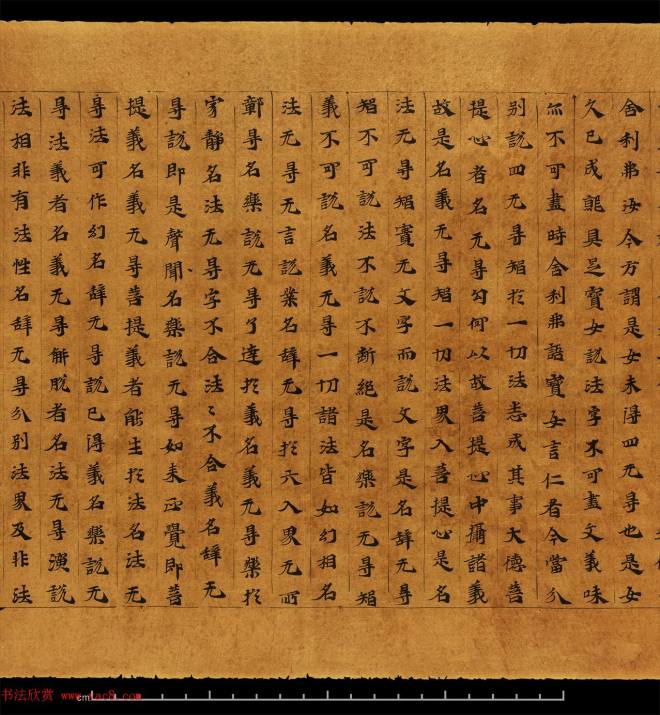 舍利弗汝今方謂是女未得四无㝵也是女
久已成就具足寶女說法字不可盡文義味
亦不可盡時舍利弗語寶女言仁者今當分
别說四无㝵智於一切法悉成其事大德菩
提心者名无㝵句何以故菩提心中攝諸義
故是名義无㝵智一切法界入菩提心是名
法无㝵智實无文字而說文字是名辭无㝵
智不可說法不說不斷絕是名樂說无㝵智
義不可說名義无㝵一切諸法皆如幻相名
法无㝵无言說業名辭无㝵於六入界无所
鄣㝵名樂說无㝵了達於義名義无㝵樂於
寂靜名法无㝵字不合法〻不合義名辭无
㝵說即是聲聞名樂說无㝵如来正覺即菩
提義名義无㝵菩提義者能生於法名法无
㝵法可作幻名辭无㝵說已得義名樂說无
㝵法義者名義无㝵解脫者名法无㝵演說
法相非有法性名辭无㝵分别法界及非法
书法欣赏 www.yac8.com
cm